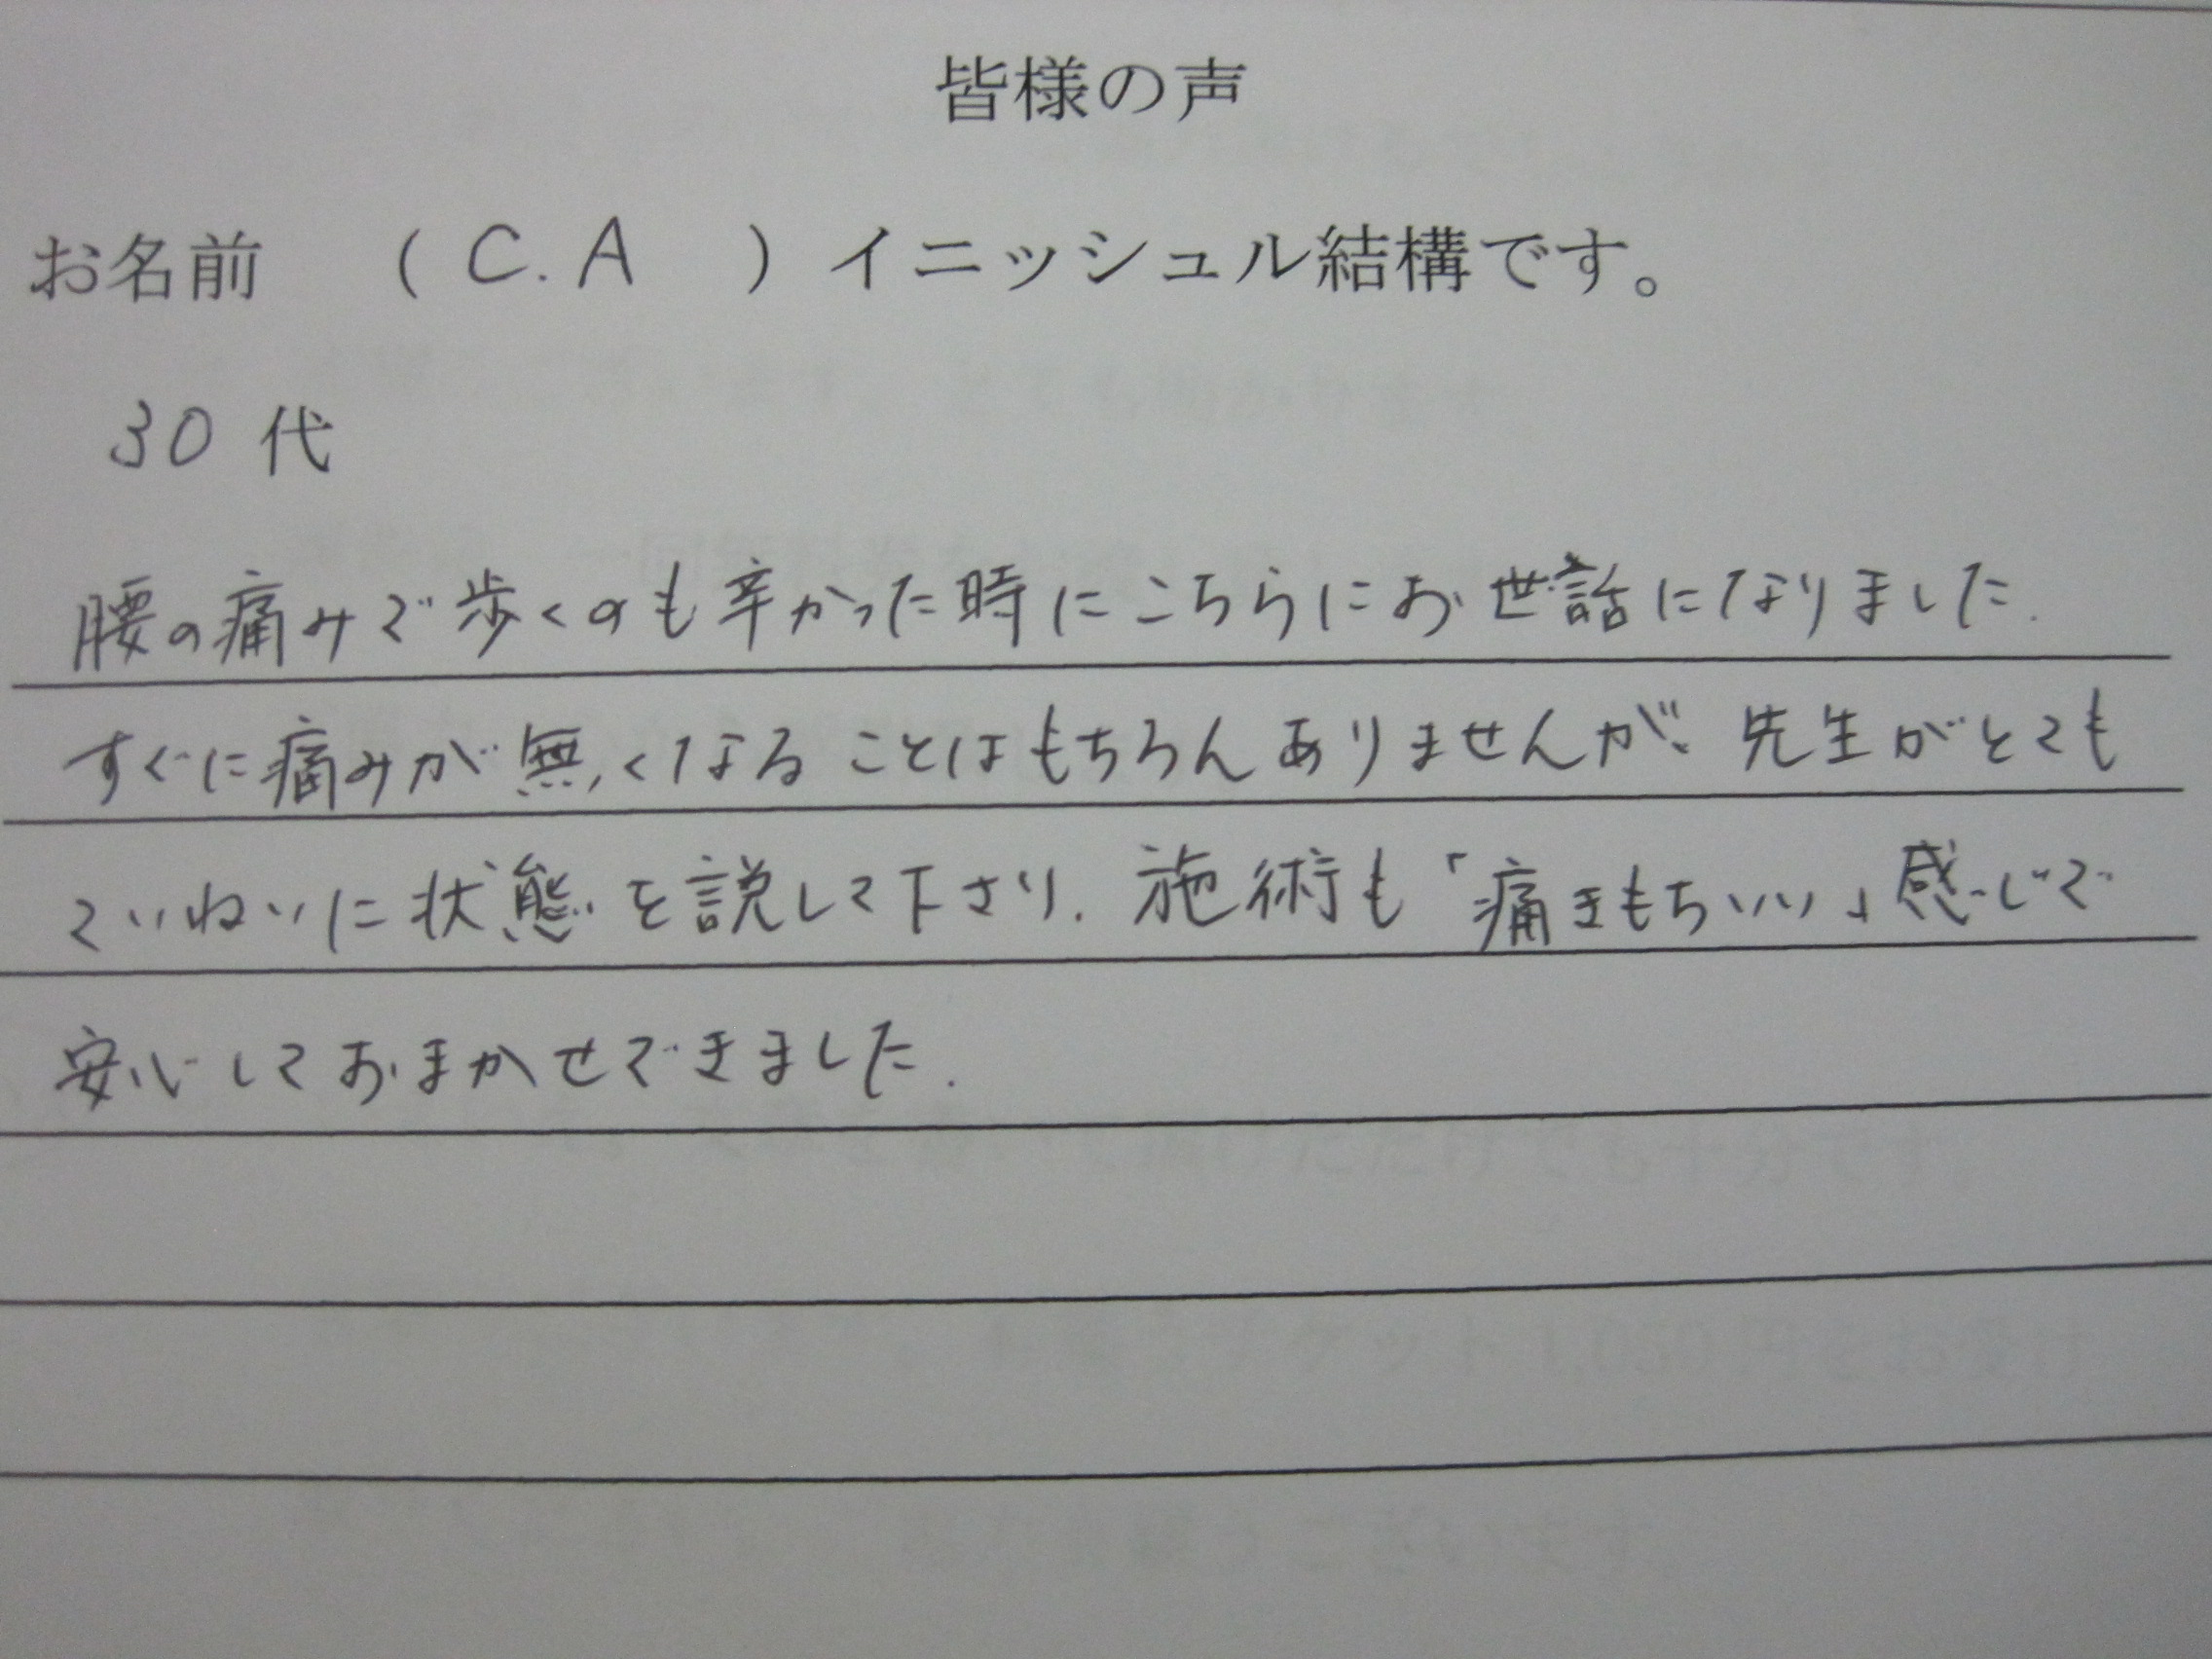 皆様の声
お名前 （ C.A ）イニッシュル結構です。
30 代
腰の痛みで歩くのも辛かった時にこちらにお世話になりました.
すぐに痛みが無くなることはもちろんありませんが、先生がとても
ていねいに状態を説して下さり. 施術も「痛きもちいい」感じで
安心しておまかせできました.